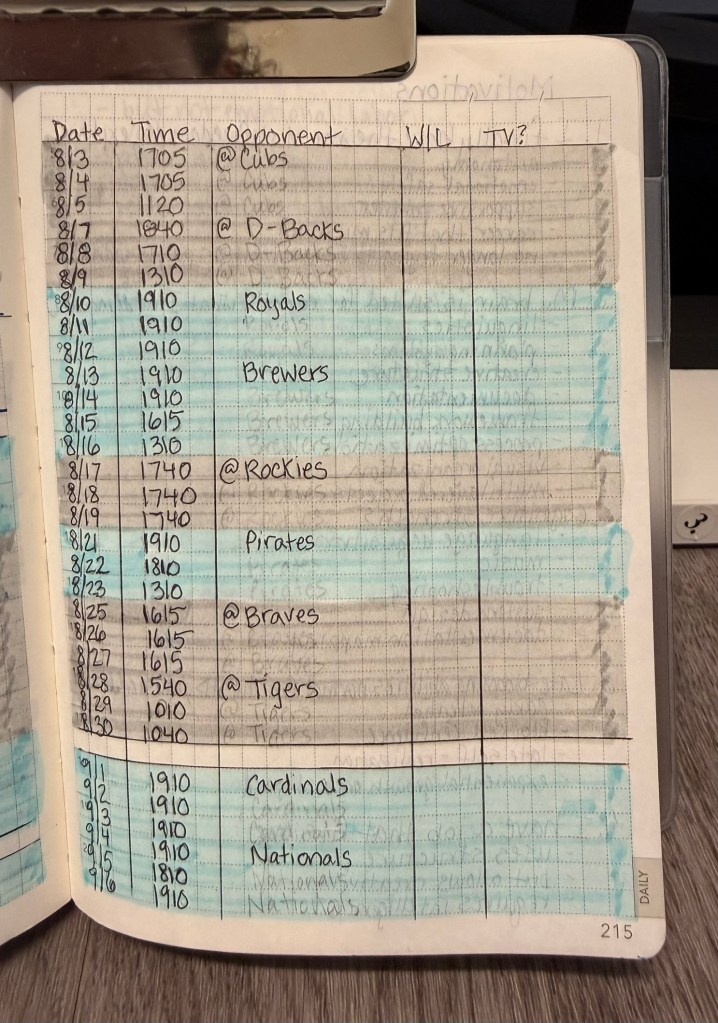 Date Time Opponent W/L TV?
8/3 1705 @ Cubs
8/4 1705 @ Cubs
8/5 1120 @ Cubs
8/7 1840 @ D-Backs
8/8 1710 @ D-Backs
8/9 1310 @ D-Backs
8/10 1910 Royals
8/11 1910 Royals
8/12 1910
8/13 1910 Brewers
8/14 1910 Brewers
8/15 1615 Brewers
8/16 1310 Brewers
8/17 1740 @ Rockies
8/18 1740
8/19 1740
8/21 1910 Pirates
8/22 1810 Pirates
8/23 1310 Pirates
8/25 1615 @ Braves
8/26 1615 @ Braves
8/27 1615 @ Braves
8/28 1540 @ Tigers
8/29 1010 @ Tigers
8/30 1040 @ Tigers
9/1 1910 Cardinals
9/2 1910 Cardinals
9/3 1910 Cardinals
9/4 1910 Nationals
9/5 1810 Nationals
9/6 1910 Nationals
DAILY
215